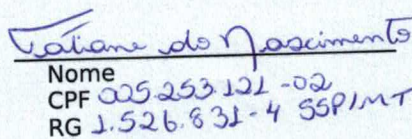 Tatiane do Nascimento
Nome
CPF 025.253.121-02
RG 1.526.831-4 SSP/MT